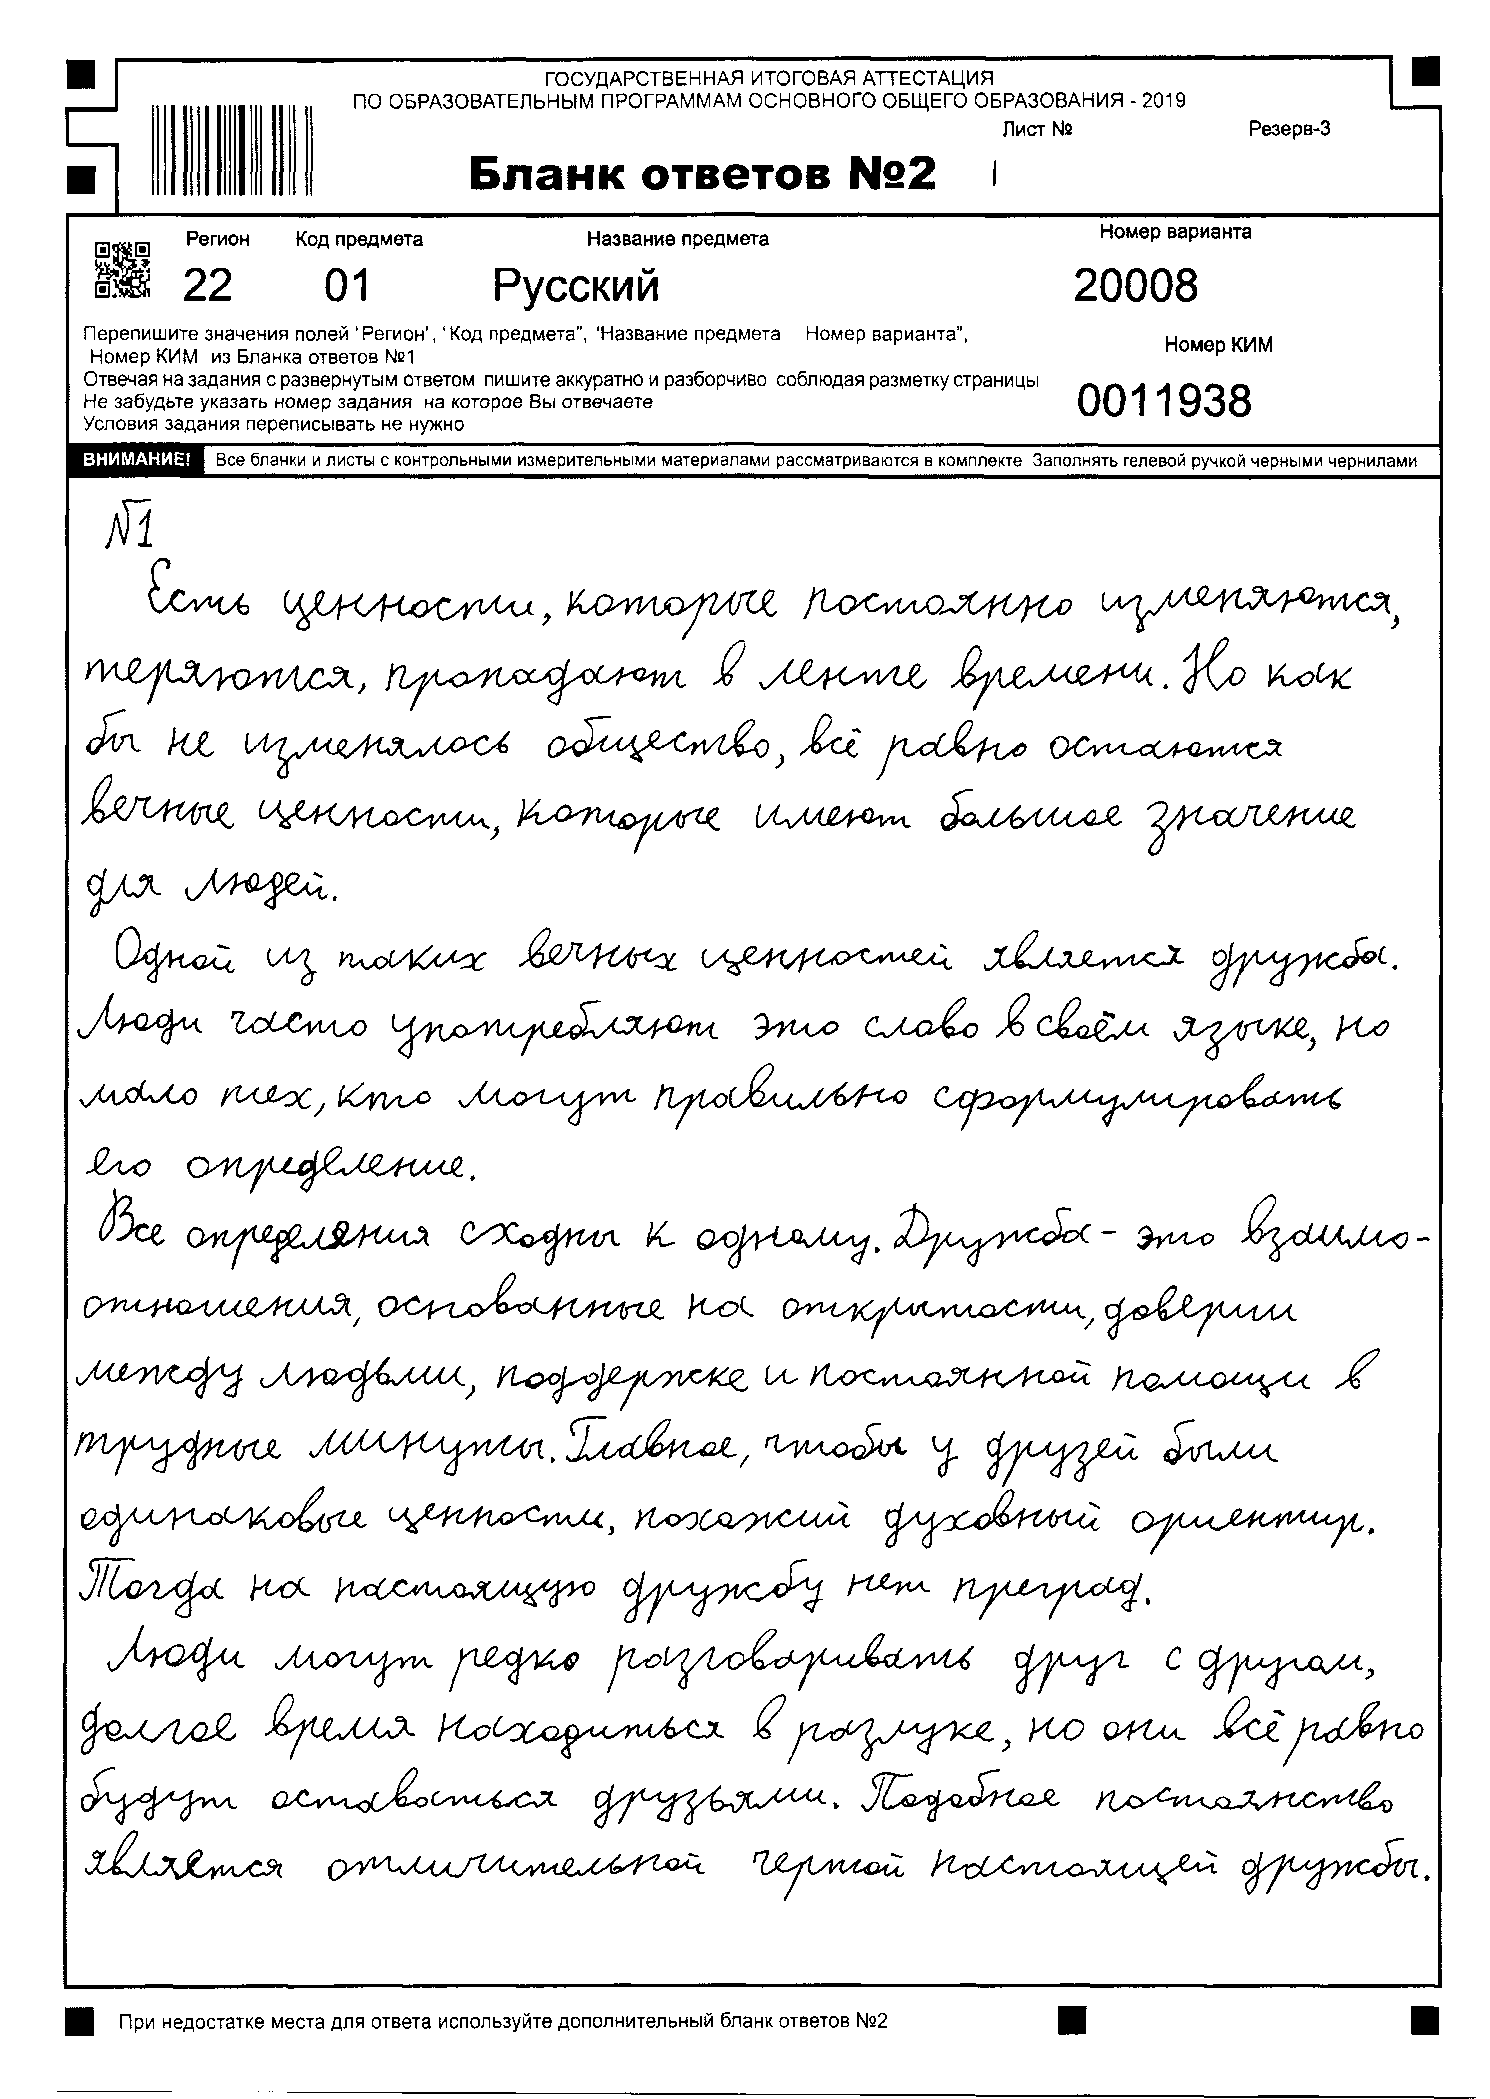 ГОСУДАРСТВЕННАЯ ИТОГОВАЯ АТТЕСТАЦИЯ
ПО ОБРАЗОВАТЕЛЬНЫМ ПРОГРАММАМ ОСНОВНОГО ОБЩЕГО ОБРАЗОВАНИЯ - 2019
Лист № Резерв-3
Бланк ответов №2
Регион Код предмета Название предмета Номер варианта
22 01 Русский 20008
Перепишите значения полей 'Регион', 'Код предмета", 'Название предмета Номер варианта",
Номер КИМ из Бланка ответов №1
Номер КИМ
Отвечая на задания с развернутым ответом пишите аккуратно и разборчиво соблюдая разметку страницы
Не забудьте указать номер задания на которое Вы отвечаете
0011938
Условия задания переписывать не нужно
ВНИМАНИЕ! Все бланки и листы с контрольными измерительными материалами рассматриваются в комплекте Заполнять гелевой ручкой черными чернилами
№1
Есть ценности, которые постоянно изменяются,
теряются, пропадают в ленте времени. Но как
бы не изменялось общество, всё равно остаются
вечные ценности, которые имеют большое значение
для людей.
Одной из таких вечных ценностей является дружба.
Люди часто употребляют это слово в своём языке, но
мало тех, кто могут правильно сформулировать
его определение.
Все определения сходны к одному. Дружба - это взаимо-
отношения, основанные на открытости, доверии
между людьми, поддержке и постоянной помощи в
трудные минуты. Главное, чтобы у друзей были
одинаковые ценности, похожий духовный ориентир.
Тогда на настоящую дружбу нет преград.
Люди могут редко разговаривать друг с другом,
долгое время находиться в разлуке, но они всё равно
будут оставаться друзьями. Подобное постоянство
является отличительной чертой настоящей дружбы.
При недостатке места для ответа используйте дополнительный бланк ответов №2